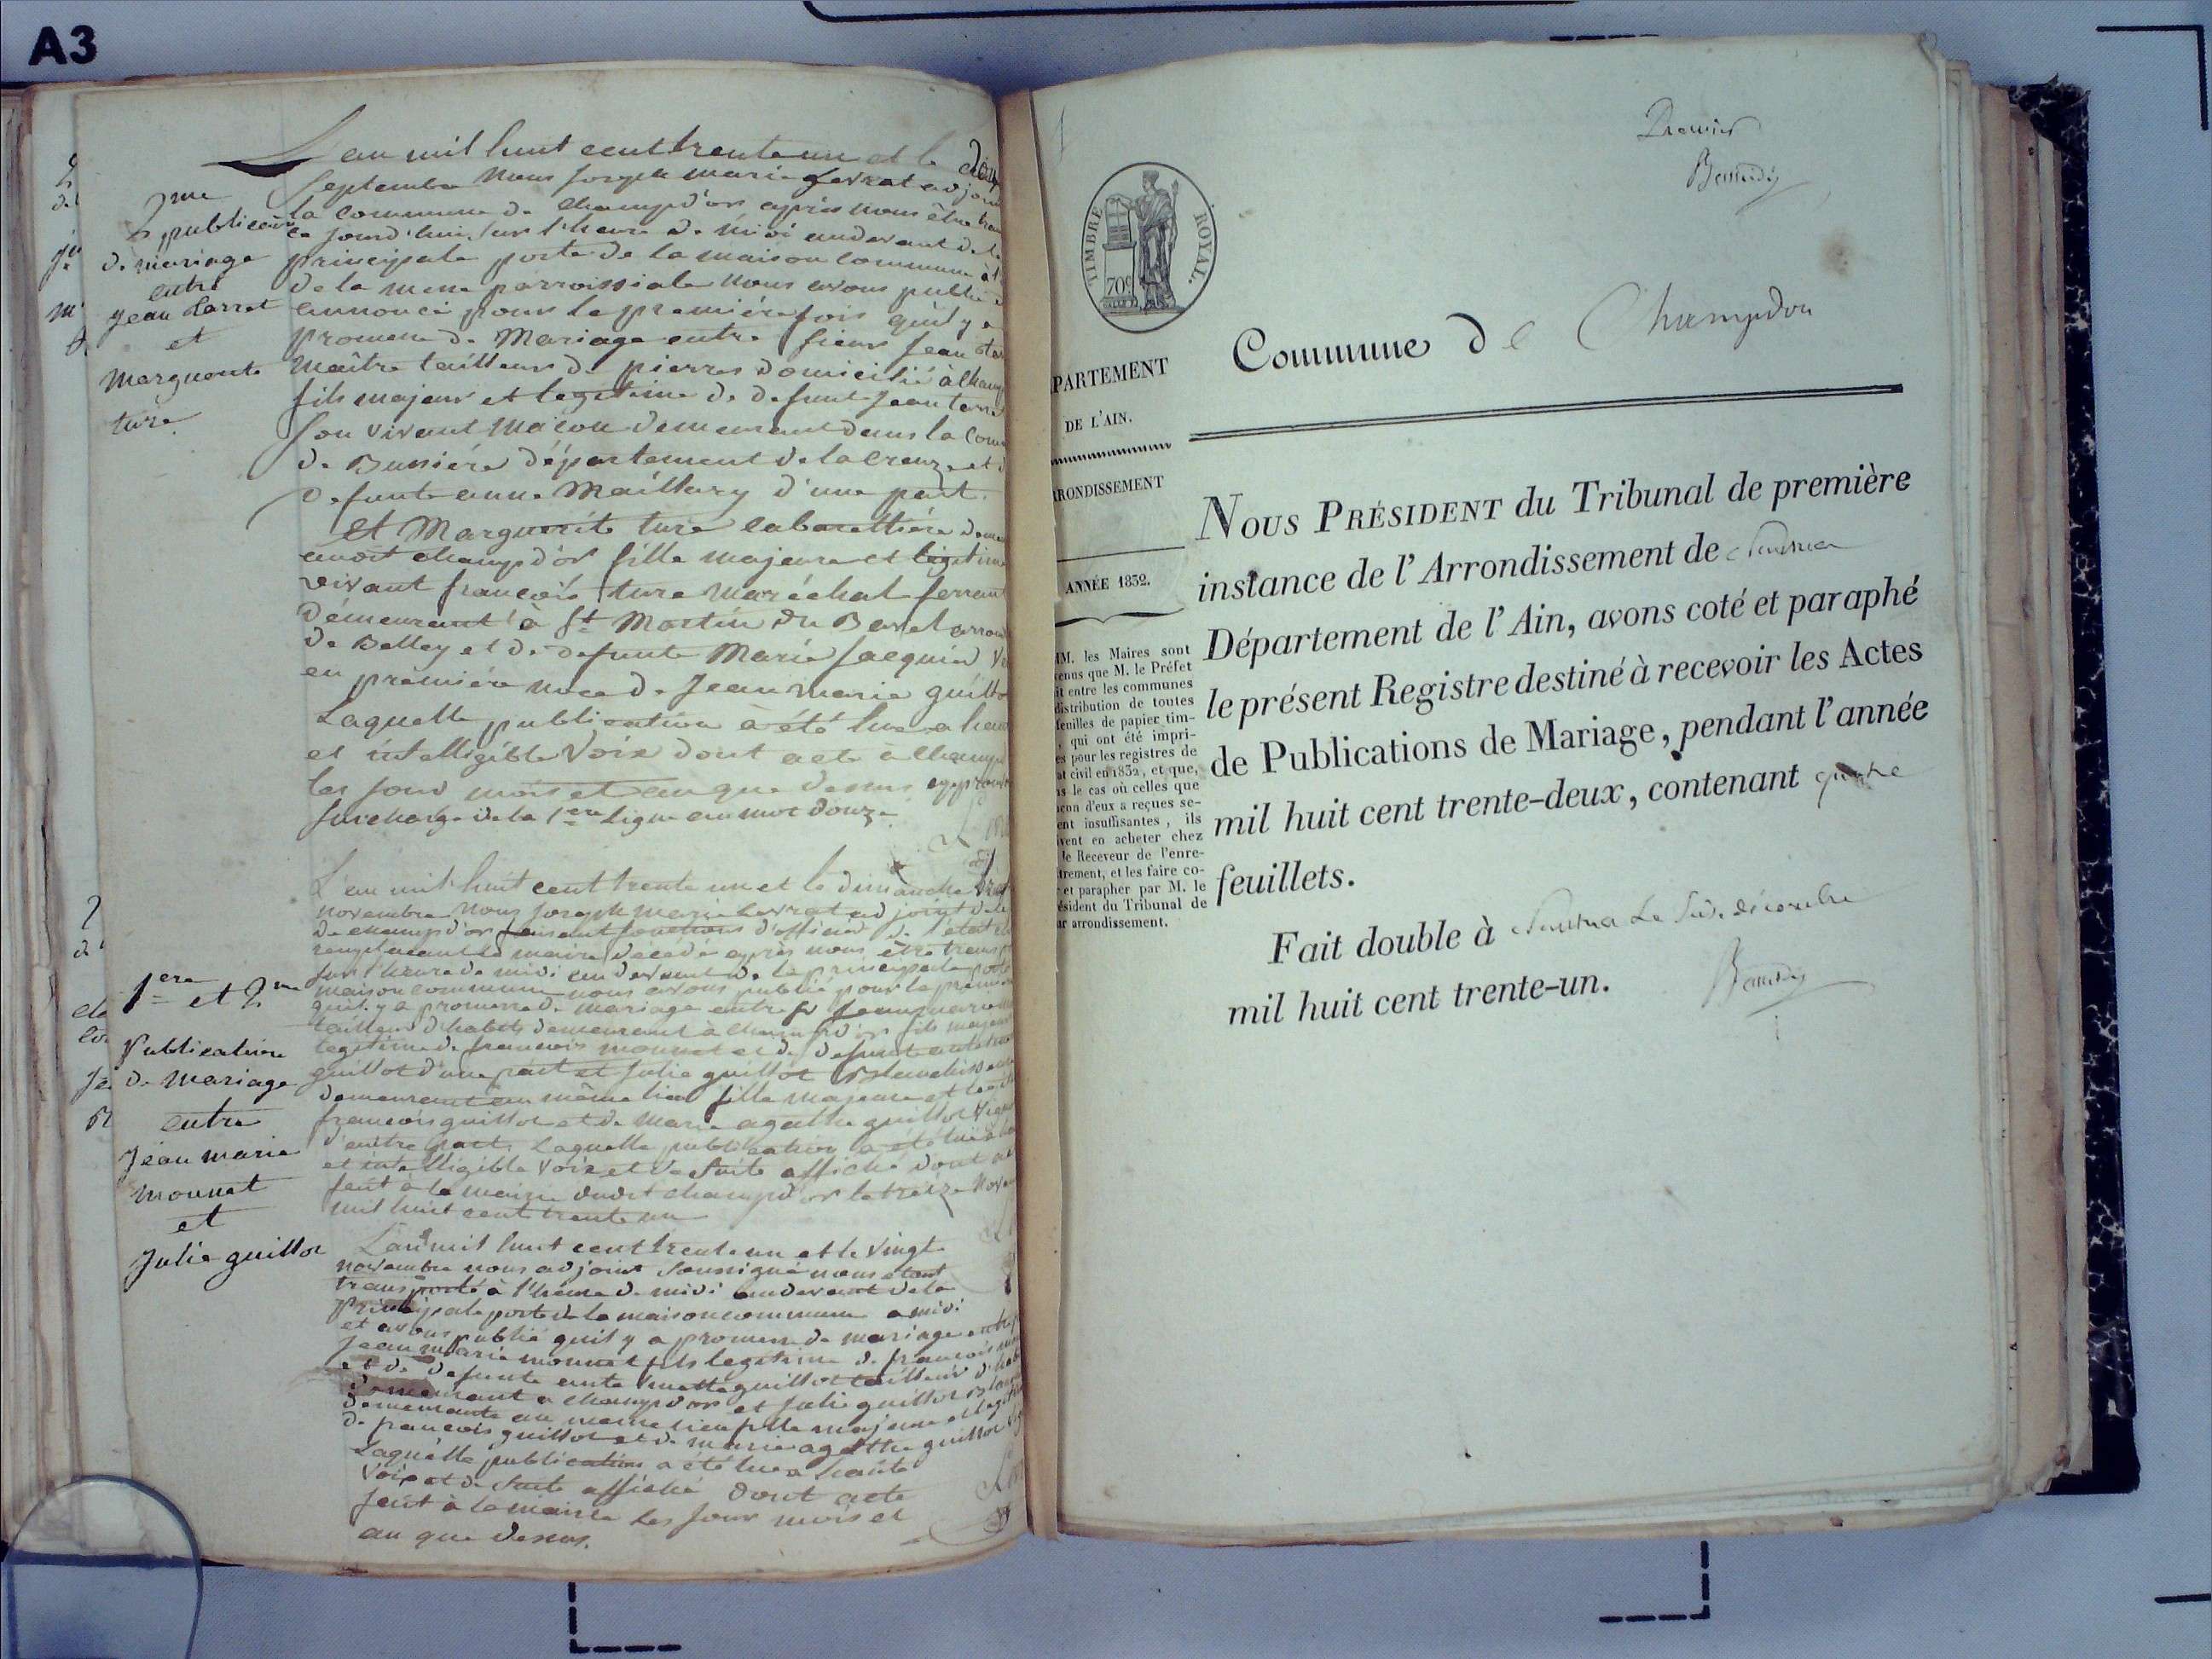 A3
L'an mil huit cent trente un et le
Septembre Nous Joseph marie Levrat adjoin
la commune de Champd'or après nous être tran
ce jourd'hui sur l'heure de midi audevant de la
principale porte de la maison commune et
de la meme parroissiale nous avons publié
annoncé pour la première fois quil y a
promesse de Mariage entre sieur Jean
Maître tailleur de pierres domicilié à Champ
fils majeur et legitime de defunt Jean
son vivant Maçon demeurant dans la Com
de Bussiére département de la Creuze et
defunte anne Maillary d'une part.
et Marguerite ture cabarettiére deme
audit champd'or fille majeure et légitime
vivant françois ture maréchal ferrant
démeurant à St Martin du Bavel arron
de Belley et de defunte Marie Jacquier
en première noce de Jean marie guillo
Laquelle publication à été lue a hau
et intelligible Voix dont acte à Champ
les jour mois et an que dessus approuv
surcharge de la 1ere ligne au mot douze
2me
publication
de mariage
entre
Jean tarret
et
Marguerite
ture
L'an mil huit cent trente un et le dimanche
novembre Nous Joseph marie Levrat adjoint de la
de champd'or faisant fonctions d'officier de l'état
remplacant le maire décédé après nous être transp
sur l'heure de midi audevant de la principale porte
maison commune nous avons publié pour la premi
quil y a promesse de mariage entre Jean marie
tailleur d'habits demeurant à Champd'or fils majeur
legitime de francois monnet et de defunte
guillot d'une part et Julie guillot Blanchisseuse
demeurant au même lieu fille majeure et legit
francois guillot et de Marie agathe guillot
d'autre part, Laquelle publication a été lue a
et intelligible voix et de suite affiché dont ac
fait à la mairie dudit champd'or le treize Nove
mil huit cent trente un
1ere et 2me
Publication
de mariage
entre
Jean marie
monnet
et
Julie guillot
L'an mil huit cent trente un et le vingt
novembre nous adjoint soussigné nous étant
transporté à l'heure de midi audevant de la
principale porte de la maison commune a midi
et avons publié quil y a promesse de mariage entre
Jean marie monnet fils legitime de francois
et de defunte guillot tailleur d'hab
demeurant a champd'or et Julie guillot Blan
demeurante au meme lieu fille majeure et legit
de francois guillot et de marie agathe guillot
Laquelle publication a été lue a haute
voix et de suite affiché dont acte
fait à la mairie les jour mois et
an que dessus.
Premier
TIMBRE ROYAL.
70c
Commune de Champdor
PARTEMENT
DE L'AIN.
RRONDISSEMENT
ANNÉE 1832.
MM. les Maires sont
enus que M. le Préfet
it entre les communes
distribution de toutes
feuilles de papier tim-
, qui ont été impri-
es pour les registres de
at civil en 1832, et que,
s le cas où celles que
acun d'eux a reçues se-
ent insuffisantes, ils
ivent en acheter chez
le Receveur de l'enre-
trement, et les faire co-
r et parapher par M. le
ésident du Tribunal de
ur arrondissement.
NOUS PRÉSIDENT du Tribunal de première
instance de l'Arrondissement de Nantua
Département de l'Ain, avons coté et paraphé
le présent Registre destiné à recevoir les Actes
de Publications de Mariage, pendant l'année
mil huit cent trente-deux, contenant quatre
feuillets.
Fait double à Nantua Le décembre
mil huit cent trente-un.